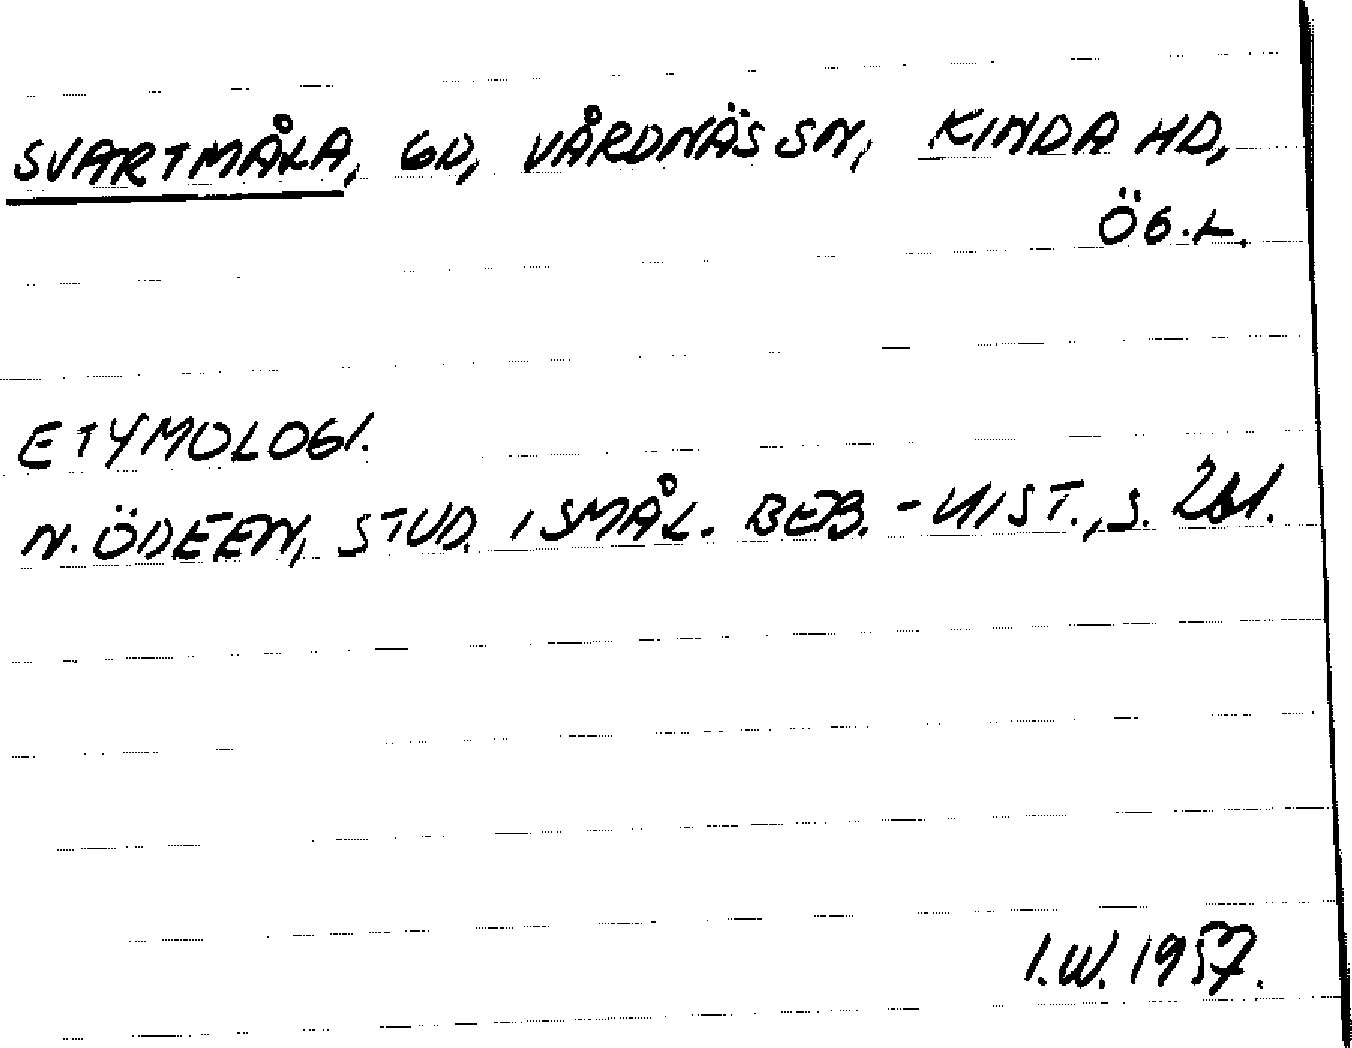 SVARTMÅLA, GD, VÅRDNÄS SN, KINDA HD,
ÖG.L.
ETYMOLOGI.
N. ÖDEEN, STUD. I SMÅL. BEB.-HIST., S. 261.
I.W. 1957.